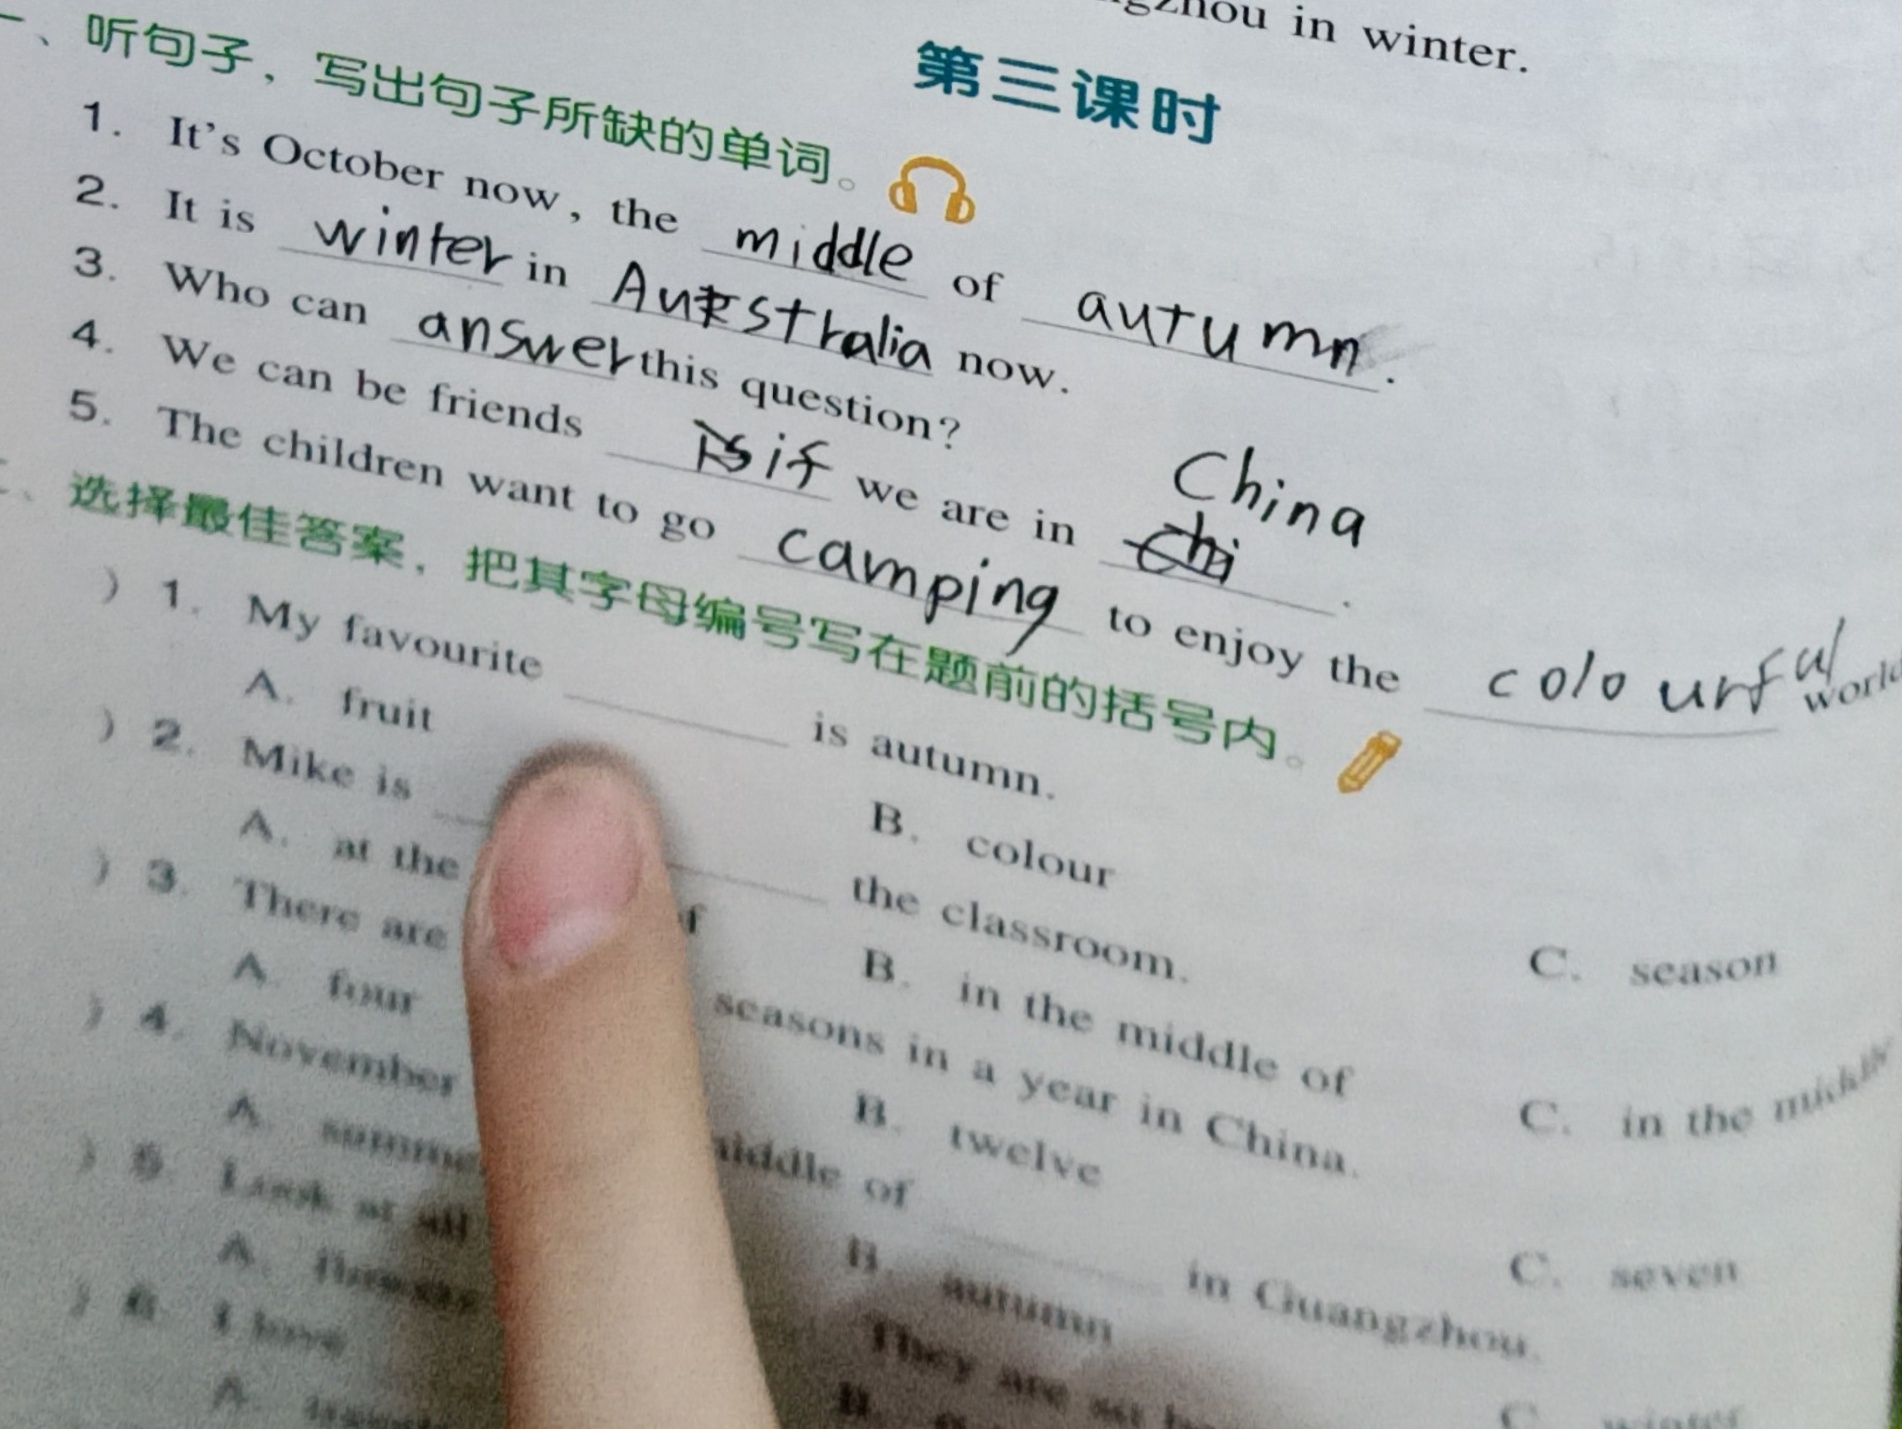 gzhou in winter.
第三课时
一、听句子，写出句子所缺的单词。
1. It's October now, the middle of autumn.
2. It is winter in Australia now.
3. Who can answer this question?
4. We can be friends if we are in China.
5. The children want to go camping to enjoy the colourful world
二、选择最佳答案，把其字母编号写在题前的括号内。
) 1. My favourite ______ is autumn.
A. fruit B. colour C. season
) 2. Mike is ______ the classroom.
A. at the f B. in the middle of C. in the middle
) 3. There are seasons in a year in China.
A. four B. twelve C. seven
) 4. November middle of ______ in Guangzhou.
A. summer B. autumn C. winter
) 5. Look at all They are so
A. B.
) 6. I love
A.